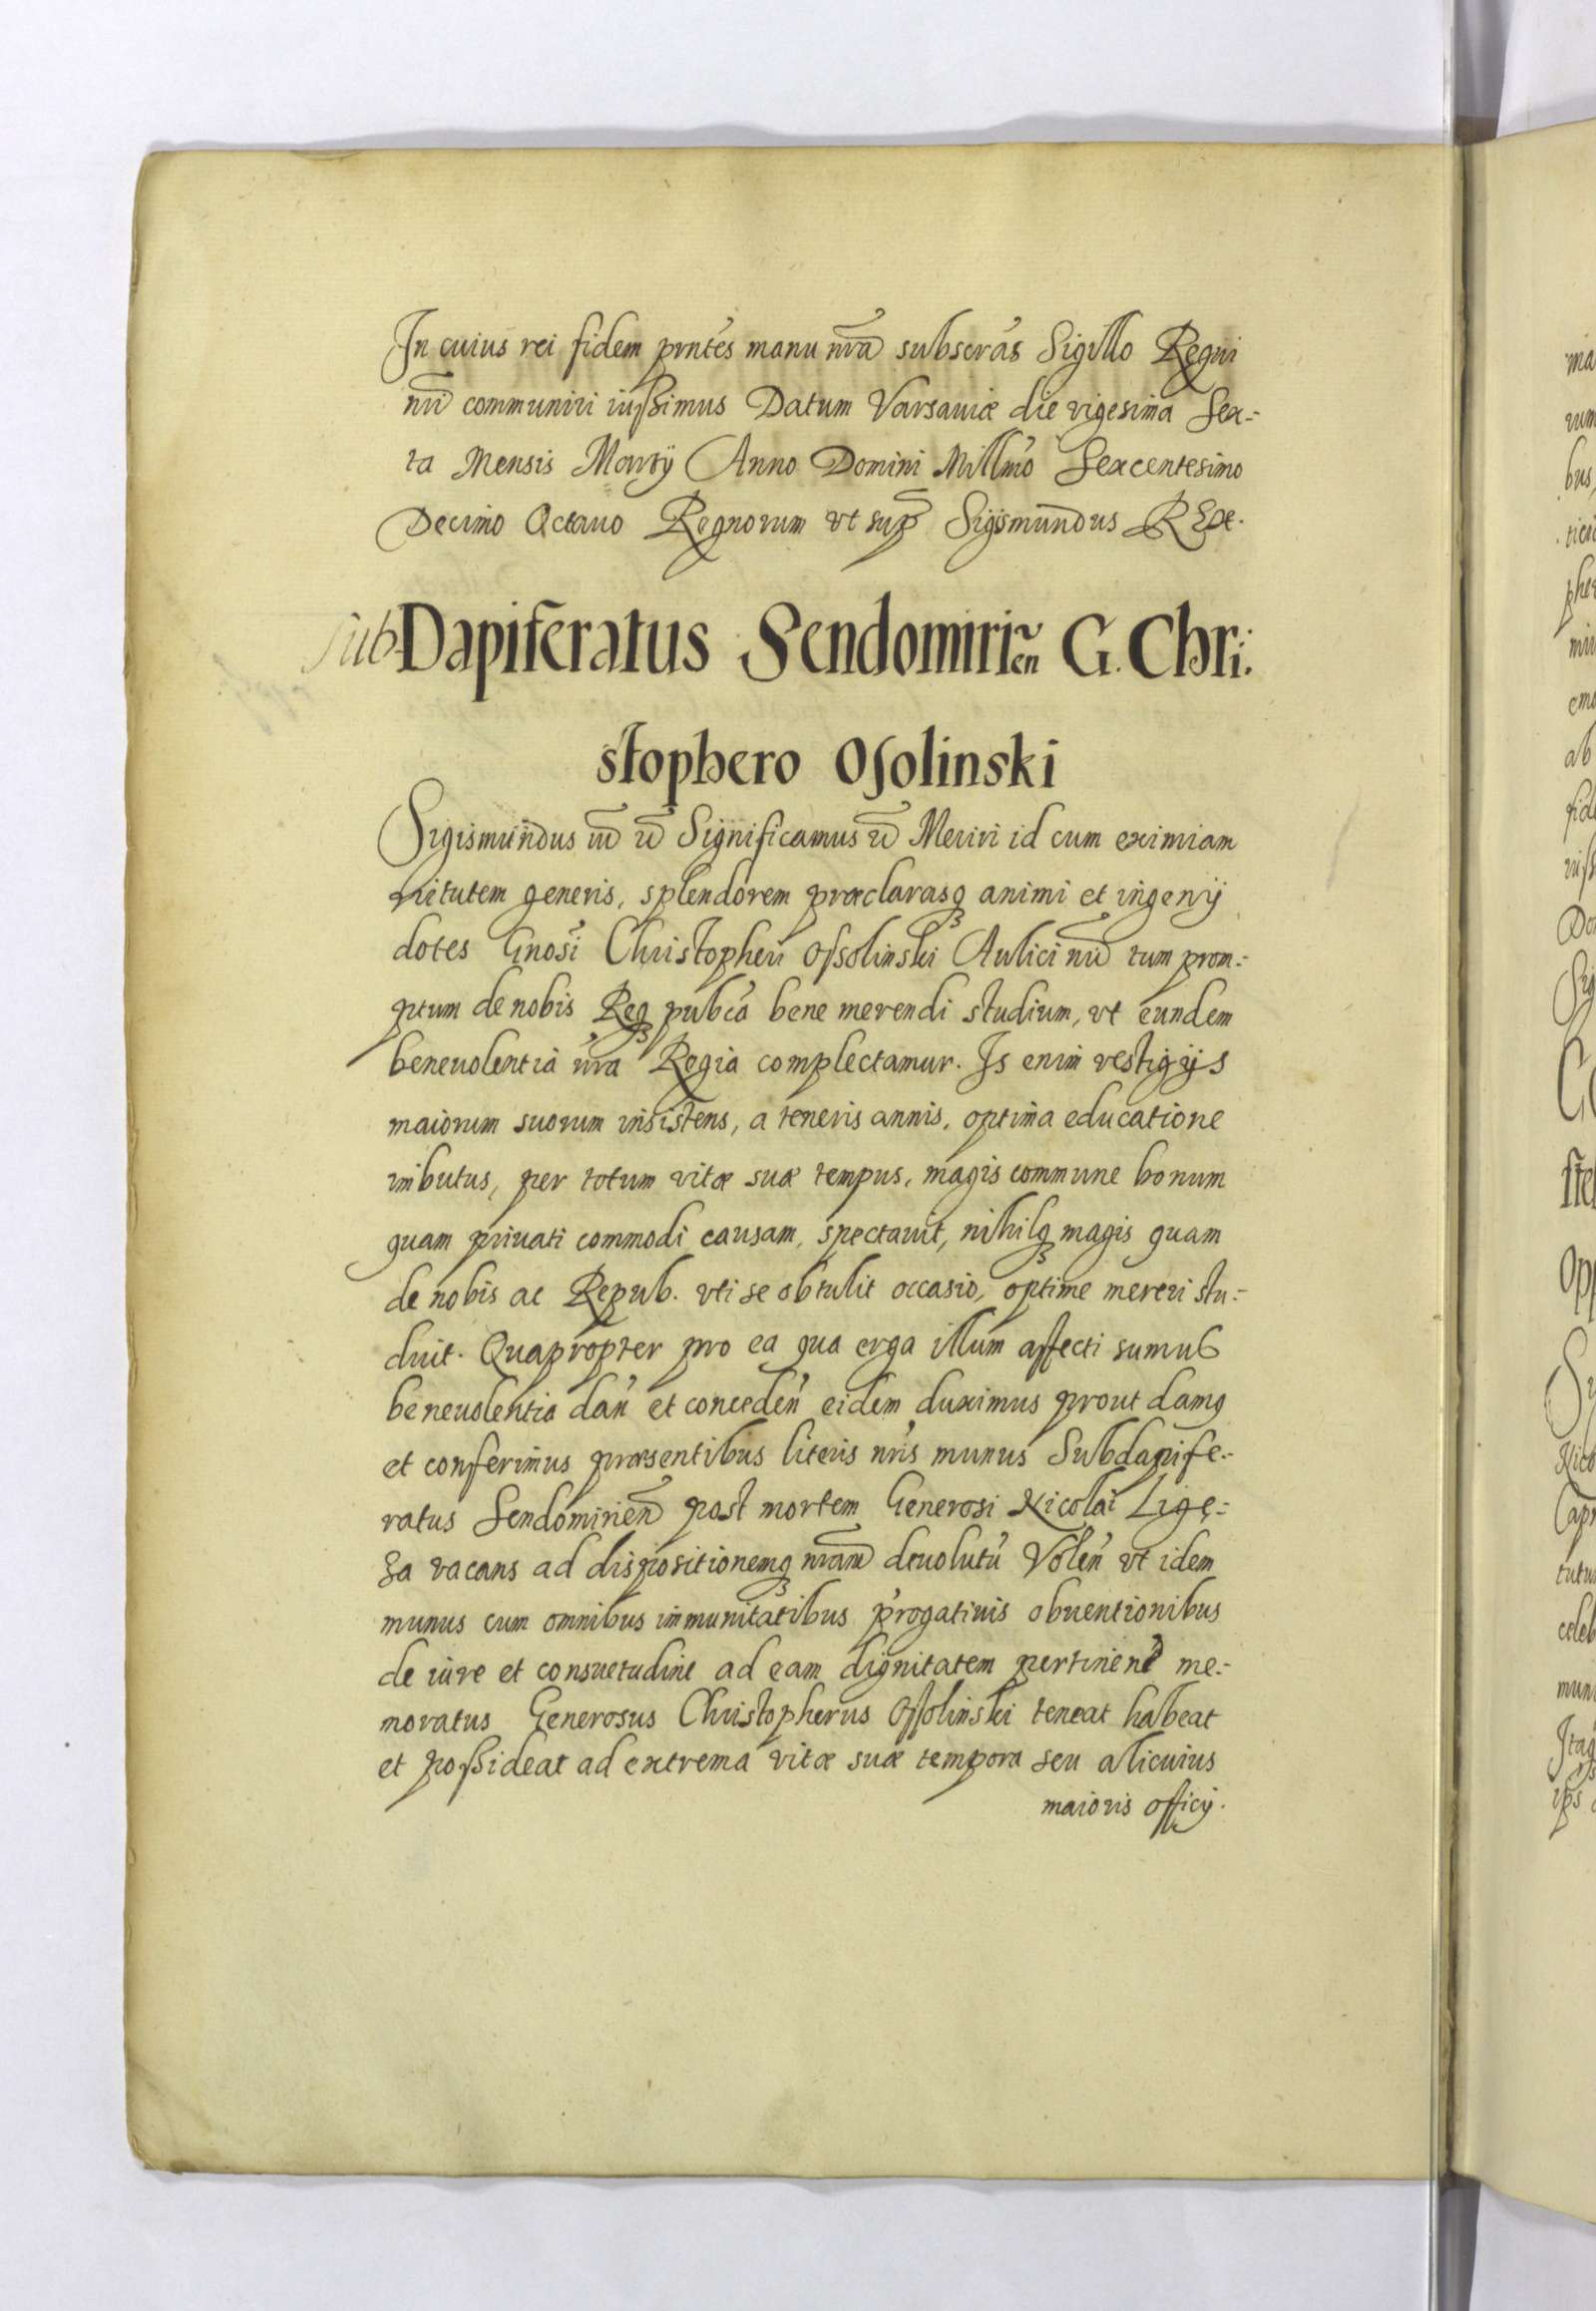 In cuius rei fidem prntes manu nra subscras Sigillo Regni
nri communiri iussimus Datum Varsauiæ die vigesima Sex-
ta Mensis Martij Anno Domini Millmo Sexcentesimo
Decimo Octauo Regnorum vt sup Sigismundus REx.
sub-Dapiferatus Sendomirien G. Chri:
stophero Osolinski
Sigismundus Significamus Meriri id cum eximiam
vitutem generis, splendorem præclarasq animi et ingenij
dotes Gnosi Christopheri Ossolinski Aulici nri tum prom:
ptum de nobis Reqz pubca bene merendi studium, vt eundem
beneuolentia nra Regia complectamur. Is enim vestigijs
maiorum suorum insistens, a teneris annis, optima educatione
imbutus, per totum vitæ suæ tempus, magis commune bonum
quam priuati commodi causam, spectauit, nihilqz magis quam
de nobis ac Repub. vti se obtulit occasio, optime mereri stu:
duit. Quapropter pro ea qua erga illum affecti sumus
beneuolentia dan et conceden eidem duximus prout damq
et conferimus præsentibus literis nris munus Subdapife-
ratus Sendomirien post mortem Generosi Nicolai Lige-
za vacans ad dispositionemqz nram deuolutu Volen vt idem
munus cum omnibus immunitatibus progatiuis obuentionibus
de iure et consuetudine ad eam dignitatem pertinen me-
moratus Generosus Christopherus Ossolinski teneat habeat
et possideat ad extrema vitæ suæ tempora seu alicuius
maioris officij.